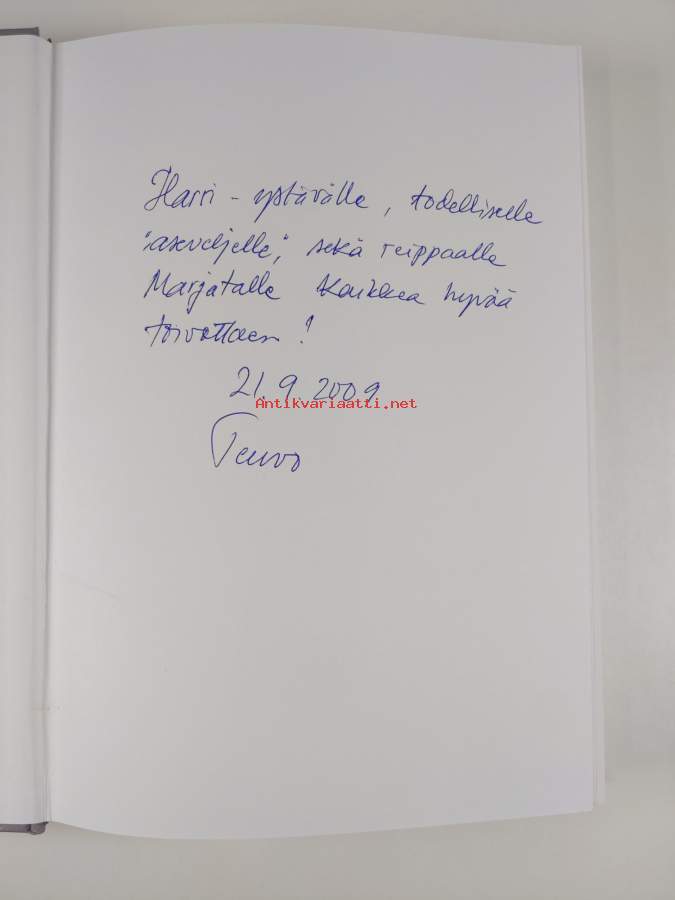 Harri - ystävälle, todelliselle
"aseveljelle", sekä reippaalle
Marjatalle Kaikkea hyvää
toivottaen!
21.9.2009
Antikvariaatti.net
Teuvo